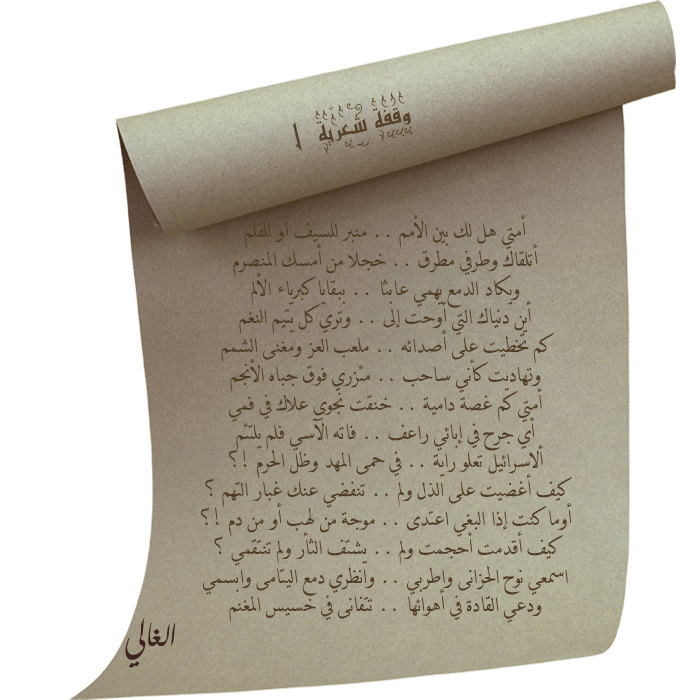 وقفة شعرية ١
أمتي هل لك بين الأمم . . منبر للسيف أو للقلم
أتلقاك وطرفي مطرق . . خجلا من أمسك المنصرم
ويكاد الدمع يهمي عابثا . . ببقايا كبرياء الألم
أين دنياك التي أوحت إلى . . وتري كل يتيم النغم
كم تخطيت على أصدائه . . ملعب العز ومغنى الشمم
وتهاديت كأني ساحب . . مئزري فوق جباه الأنجم
أمتي كم غصة دامية . . خنقت نجوى علاك في فمي
أي جرح في إبائي راعف . . فاته الآسي فلم يلتئم
ألاسرائيل تعلو راية . . في حمى المهد وظل الحرم !؟
كيف أغضيت على الذل ولم . . تنفضي عنك غبار التهم ؟
أوما كنت إذا البغي اعتدى . . موجة من لهب أو من دم !؟
كيف أقدمت أحجمت ولم . . يشتف الثأر ولم تنتقمي ؟
اسمعي نوح الحزانى واطربي . . وانظري دمع اليتامى وابسمي
ودعي القادة في أهوائها . . تتفانى في خسيس المغنم
الغالي